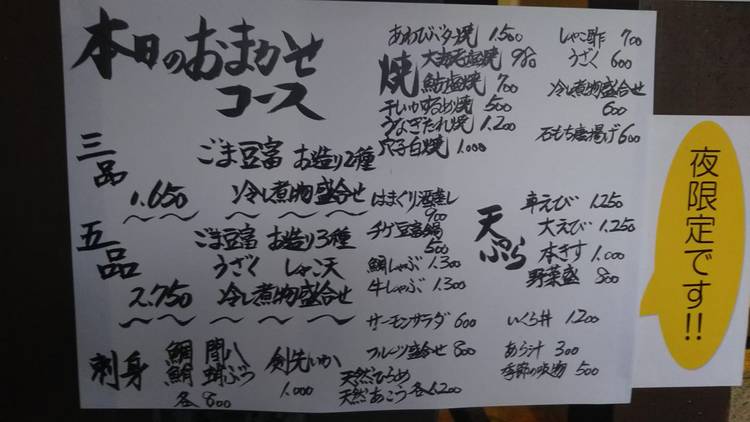 本日のおまかせ
コース
三品
ごま豆富 お造り2種
1.650 冷し煮物盛合せ
五品
ごま豆富 お造り3種
うざく しゃこ天
2.750 冷し煮物盛合せ
刺身
鯛 間八
鮪 蛸ぶつ
各800
剣先いか
1.000
天然ひらめ
天然あこう 各1.200
焼
あわびバター焼 1.500
大海老塩焼 980
鮎塩焼 700
干いかするめ焼 500
うなぎたれ焼 1.200
穴子白焼 1.000
はまぐり酒蒸し
900
チゲ豆富鍋
500
鯛しゃぶ 1.300
牛しゃぶ 1.300
サーモンサラダ 600
フルーツ盛合せ 800
しゃこ酢 700
うざく 600
冷し煮物盛合せ
600
石もち唐揚げ 600
天ぷら
車えび 1.250
大えび 1.250
本きす 1.000
野菜盛 800
いくら丼 1.200
あら汁 300
季節の吸物 500
夜限定です!!